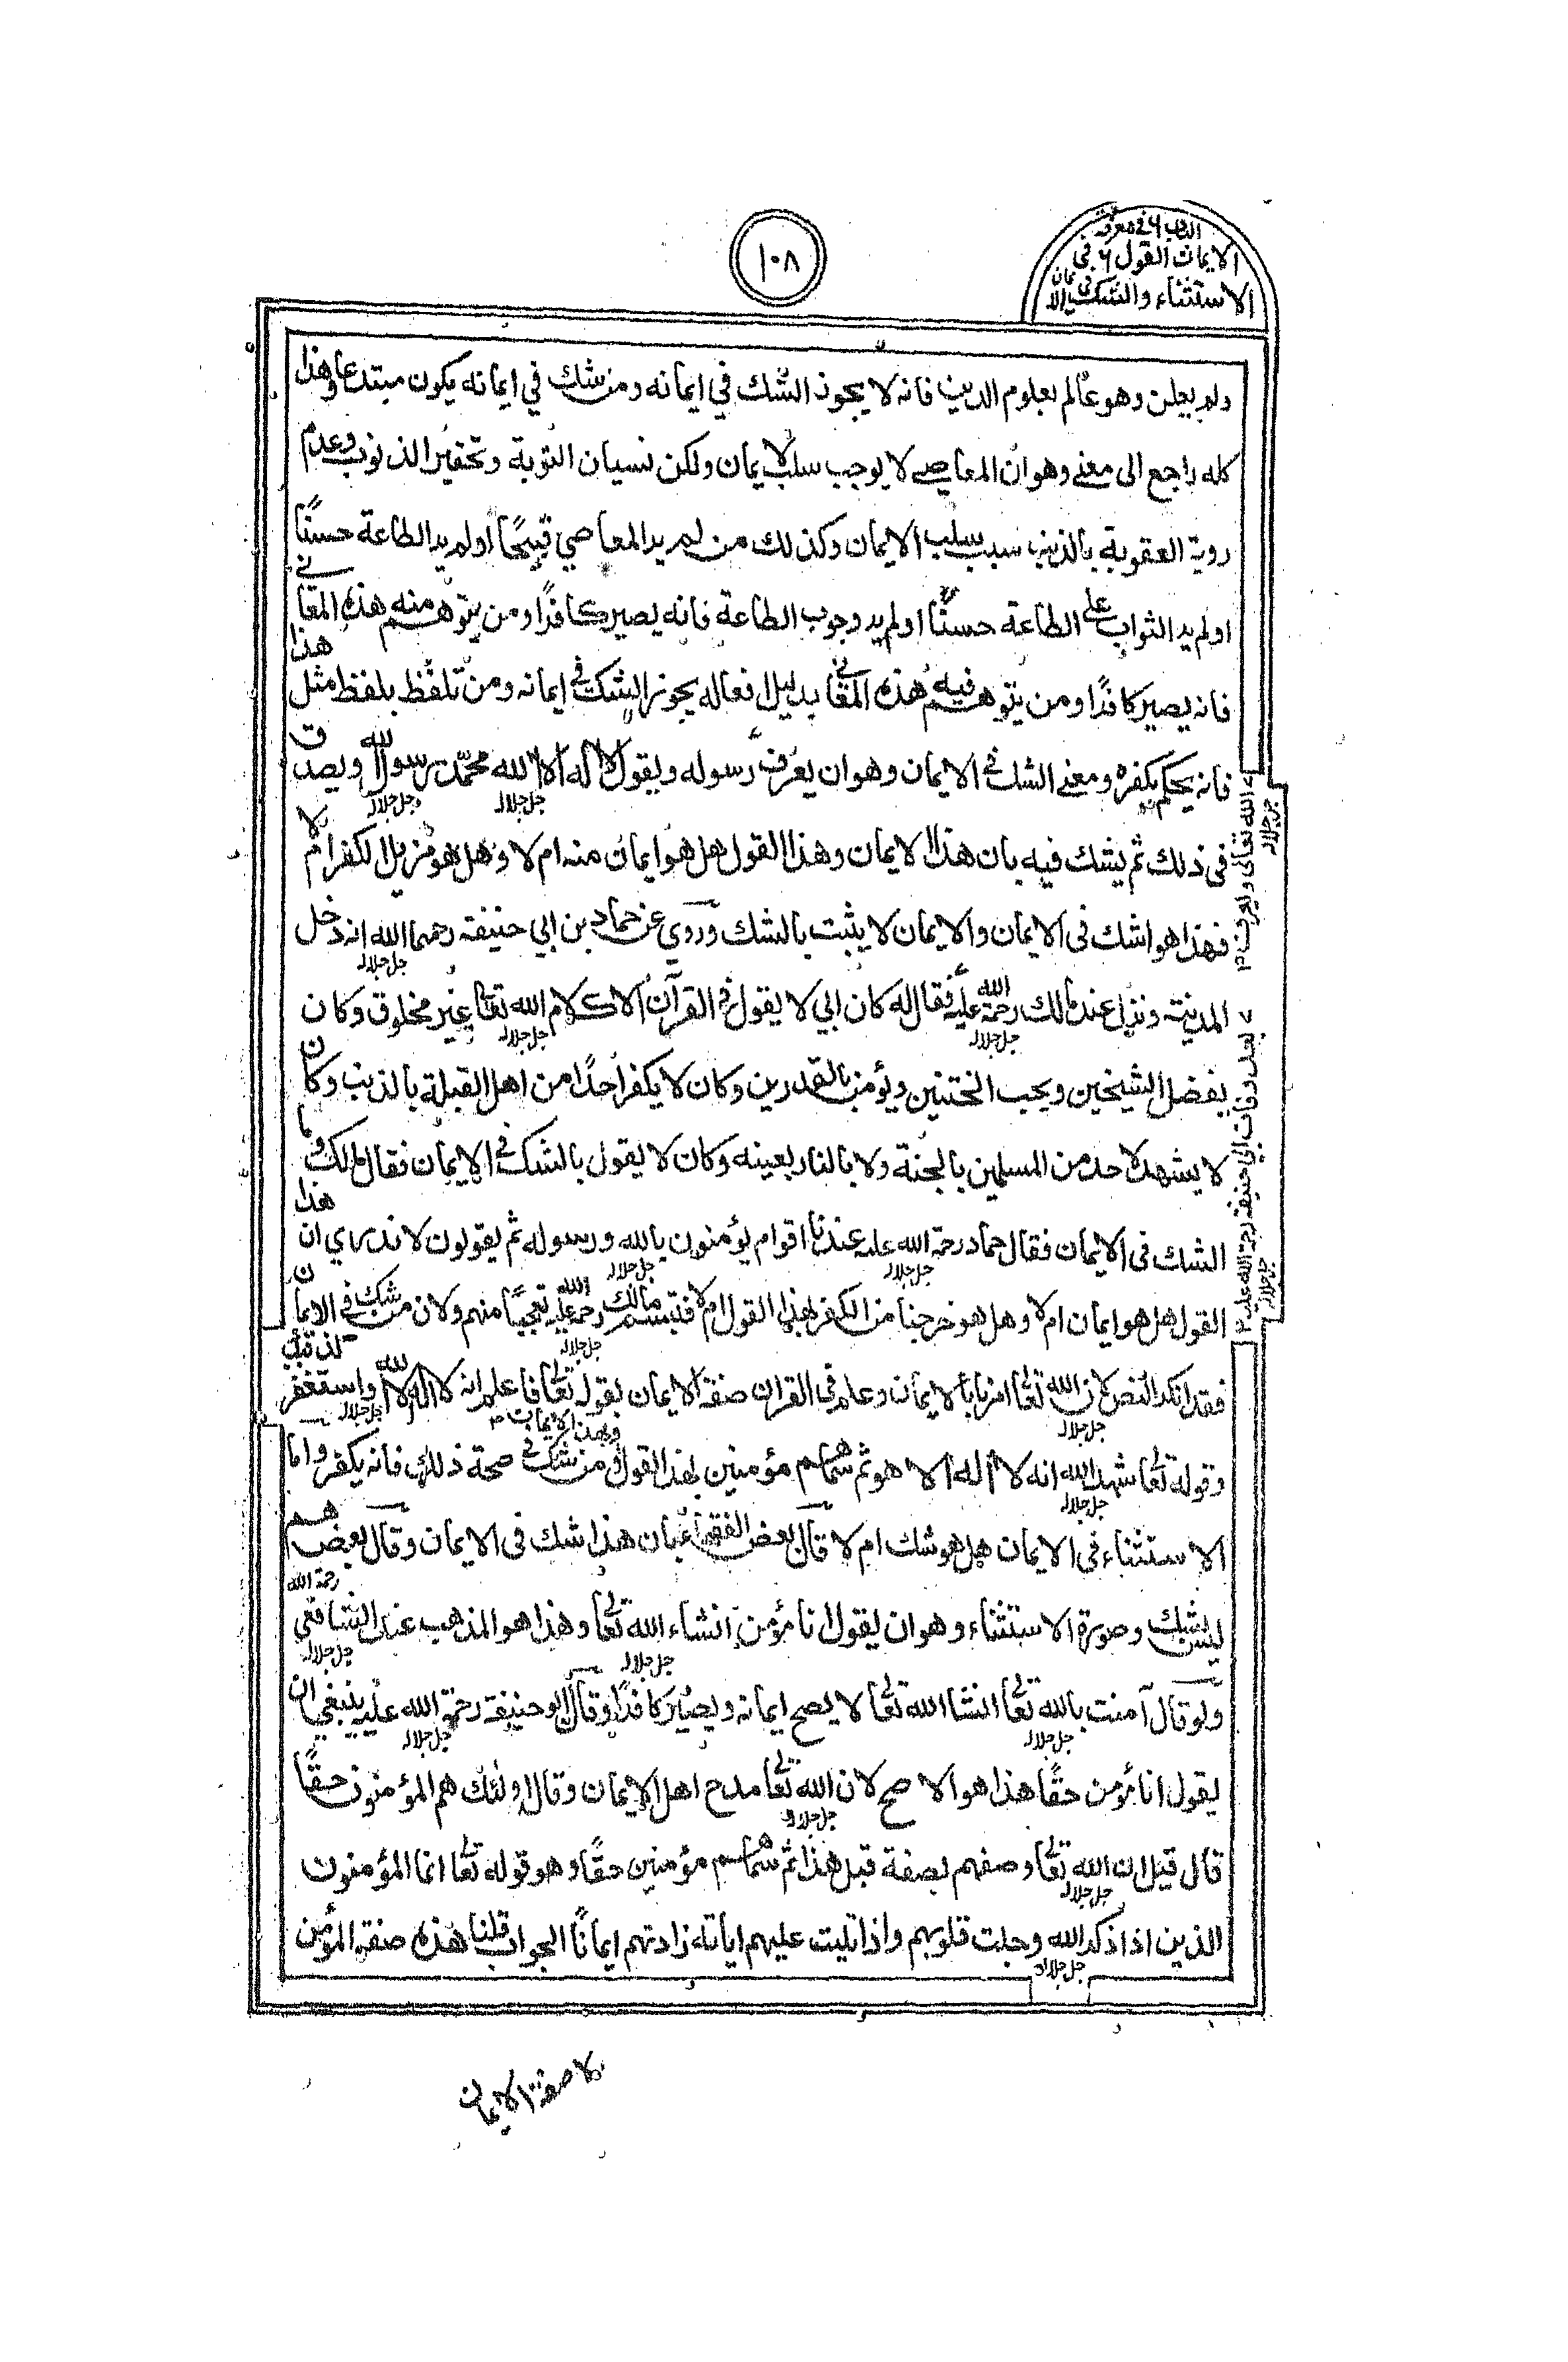 ١٠٨
الباب ٦ في معرفة
الايمان القول ٦ في
الاستثناء والشك في الايمان
ولم يعلن وهو عالم بعلوم الدين فانه لا يجوز الشك في ايمانه ومن شك في ايمانه يكون مبتدعا وهذا
كله راجع الى معنى وهو ان المعاصي لا يوجب سلب الايمان ولكن نسيان التوبة وتحقير الذنوب وعدم
روية العقوبة بالذنب سبب سلب الايمان وكذلك من لم ير المعاصي قبيحًا او لم ير الطاعة حسنًا
او لم ير الثواب على الطاعة حسنًا او لم ير وجوب الطاعة فانه يصير كافرًا ومن يتوهم منه هذه المعاني
فانه يصير كافرًا ومن يتوهم فيه هذه المعاني بدليل افعاله يجوز الشك في ايمانه ومن تلفظ بلفظ مثل هذا
فانه يحكم بكفره ومعنى الشك في الايمان وهو ان يعرف رسوله ويقول لا اله الا الله محمد رسول الله ويصدق
جل جلاله جل جلاله
في ذلك ثم يشك فيه بان هذا الايمان وهذا القول هل هو ايمان منه ام لا وهل هو مزيل الكفر ام لا
فهذا هو اشك في الايمان والايمان لا يثبت بالشك وروي عن حماد بن ابي حنيفة رحمهما الله انه دخل
جل جلاله
المدينة ونزل عند مالك رحمة الله عليه فقال له كان ابي لا يقول في القرآن الا كلام الله تعا غير مخلوق وكان
جل جلاله جل جلاله
يفضل الشيخين ويحب الختنين ويؤمن بالقدرين وكان لا يكفر احدًا من اهل القبلة بالذنب وكان
لا يشهد لاحد من المسلمين بالجنة ولا بالنار بعينه وكان لا يقول بالشك في الايمان فقال مالك وما
الشك في الايمان فقال حماد رحمة الله عليه عندنا اقوام يؤمنون بالله ورسوله ثم يقولون لا ندري ان هذا
جل جلاله جل جلاله
القول هل هو ايمان ام لا وهل هو خرجنا من الكفر بهذا القول ام لا فتبسم مالك رحمة الله عليه تعجبًا منهم ولان من شك في الايمان
جل جلاله
فقد انكر النص لان الله تعالى امرنا بالايمان وعلم في القران صفة الايمان بقوله تعالى فاعلم انه لا اله الا الله واستغفر لذنبك
جل جلاله جل جلاله
وقوله تعا شهد الله انه لا اله الا هو ثم سماهم مؤمنين بهذا القول وبهذا الايمان ومن شك في صحة ذلك فانه يكفر واما
جل جلاله
الاستثناء في الايمان هل هو شك ام لا قال بعض الفقهاء بان هذا شك في الايمان وقال بعضهم
ليس بشك وصورة الاستثناء وهو ان يقول انا مؤمن انشاء الله تعالى وهذا هو المذهب عند الشافعي رحمة الله
جل جلاله جل جلاله
ولو قال آمنت بالله تعالى انشا الله تعالى لا يصح ايمانه ويصير كافرًا وقال ابو حنيفة رحمة الله عليه ينبغي ان
جل جلاله جل جلاله
يقول انا مؤمن حقًا هذا هو الاصح لان الله تعالى مدح اهل الايمان وقال اولئك هم المؤمنون حقًا
جل جلاله
قال قيل ان الله تعالى وصفهم بصفة قبل هذا ثم سماهم مؤمنين حقًا وهو قوله تعالى انما المؤمنون
جل جلاله
الذين اذا ذكر الله وجلت قلوبهم واذا تليت عليهم اياته زادتهم ايمانًا الجواب قلنا هذه صفة المؤمن
جل جلاله
الله تعالى ويعرف
جل جلاله
بعد وفات ابي حنيفة رحمة الله عليه
جل جلاله
لا صفة الايمان